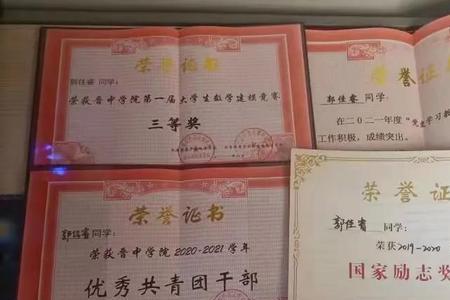 荣誉证书
郭佳睿 同学：
荣获晋中学院第一届大学生数学建模竞赛
三等奖
荣誉证
郭佳睿 同学：
在二〇二一年度"党史学习教
工作积极，成绩突出，
荣誉证书
郭佳睿同学：
荣获晋中学院 2020-2021 学年
优秀共青团干部
荣誉证
郭佳睿 同学：
荣获2019-2020
国家励志奖